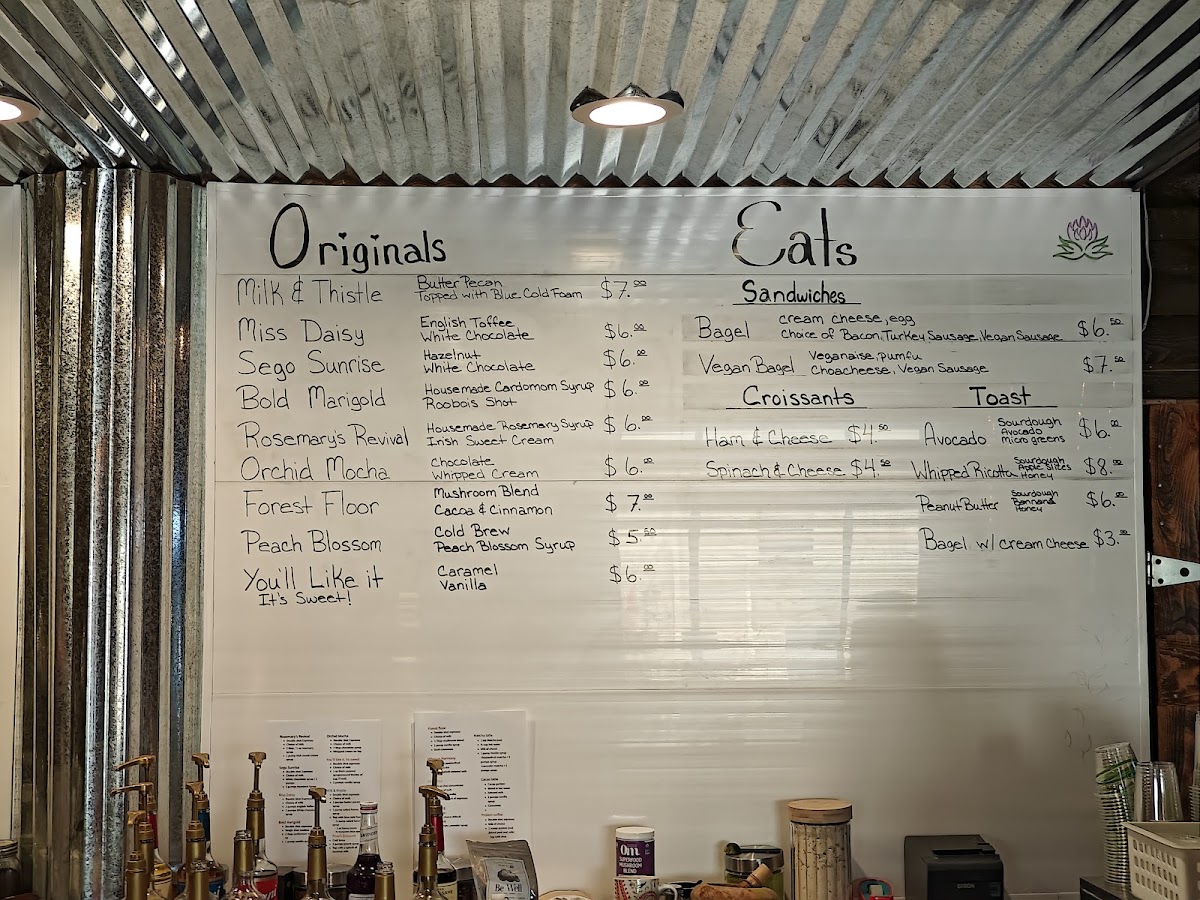 Originals
Milk & Thistle Butter Pecan $7.00
Topped with Blue Cold Foam
Miss Daisy English Toffee $6.00
White Chocolate
Sego Sunrise Hazelnut $6.00
White Chocolate
Bold Marigold Housemade Cardomom Syrup $6.00
Roobois Shot
Rosemary's Revival Housemade Rosemary Syrup $6.00
Irish Sweet Cream
Orchid Mocha Chocolate $6.00
Whipped Cream
Forest Floor Mushroom Blend $7.00
Cacoa & Cinnamon
Peach Blossom Cold Brew $5.50
Peach Blossom Syrup
You'll Like it Caramel $6.00
It's Sweet! Vanilla
Eats
Sandwiches
Bagel cream cheese, egg $6.50
Choice of Bacon, Turkey Sausage, Vegan Sausage
Vegan Bagel Veganaise, pumfu $7.50
Choacheese, Vegan Sausage
Croissants
Ham & Cheese $4.50
Spinach & Cheese $4.50
Toast
Avocado Sourdough $6.00
Avocado
micro greens
Whipped Ricotta Sourdough $8.00
Apple Slices
Honey
Peanut Butter Sourdough $6.00
Bannana
Honey
Bagel w/ cream cheese $3.00
Rosemary's Revival
Orchid Mocha
Om
SUPERFOOD
MUSHROOM
BLEND
Be Well
EPSON